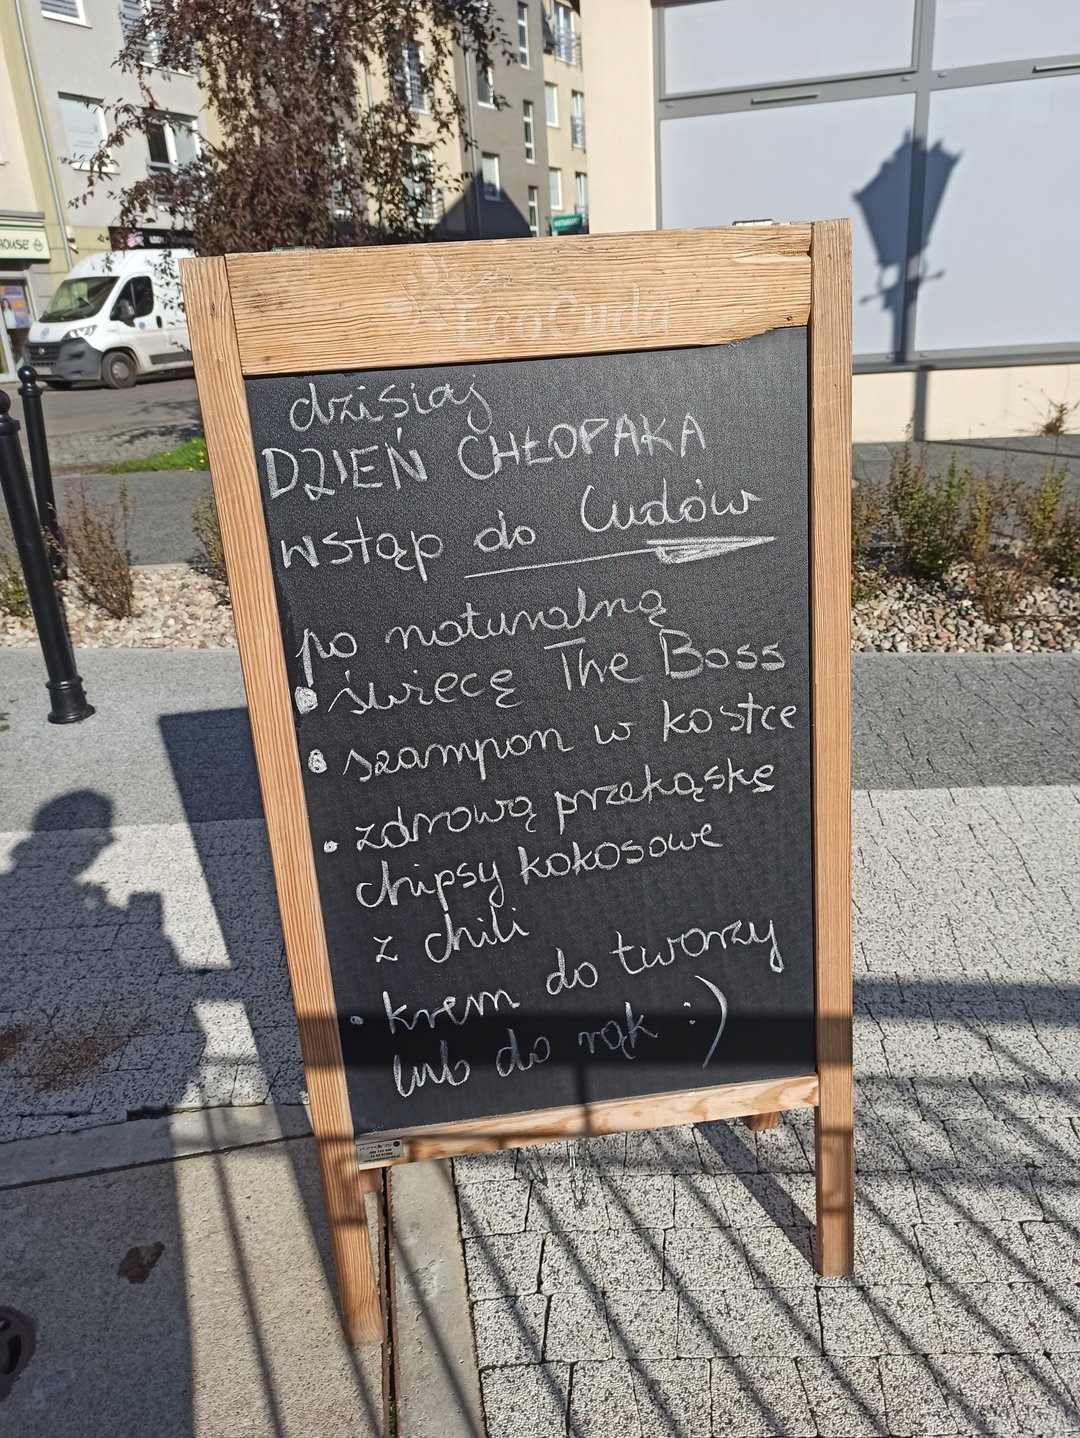 HOUSE
EcoCuda
dzisiaj
DZIEŃ CHŁOPAKA
wstąp do Cudów
po naturalną
• świecę The Boss
• szampon w kostce
• zdrową przekąskę
chipsy kokosowe
z chili
• krem do twarzy
lub do rąk :)